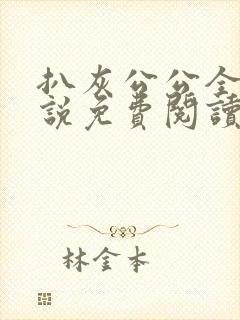 扒灰公公全
說免費閱讀
林金本